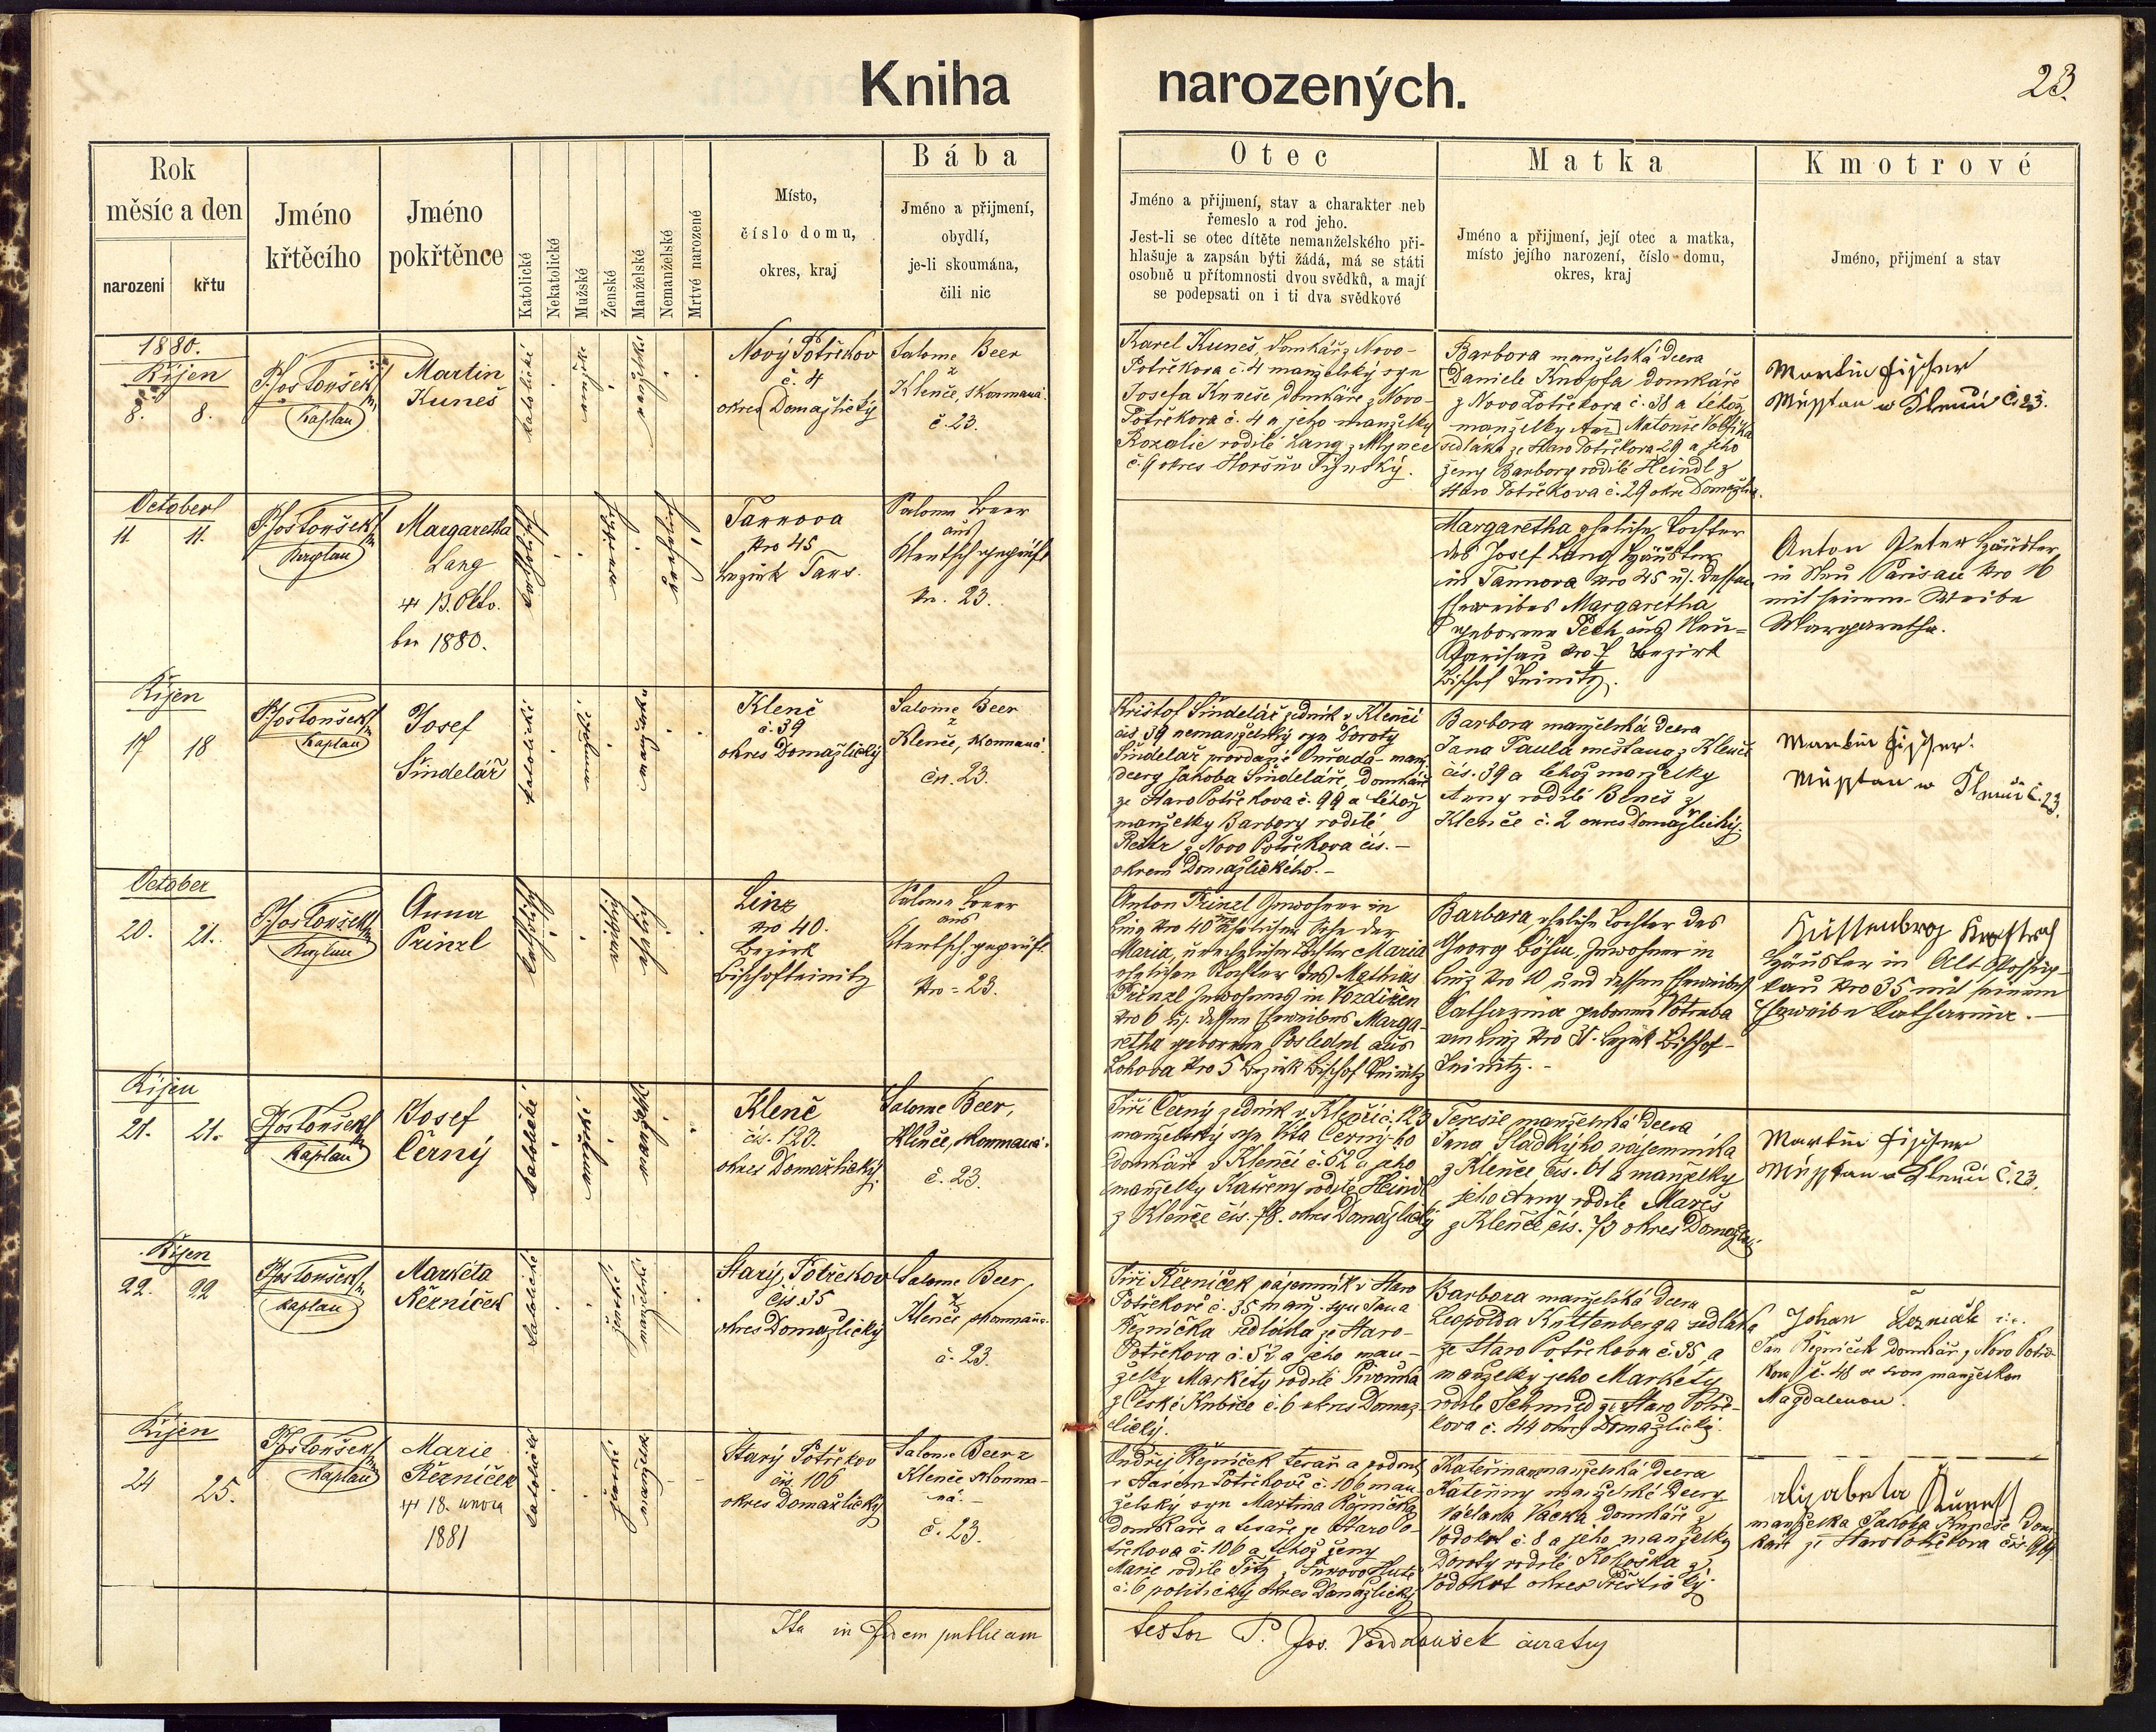 Kniha narozených.
23.
Rok
měsíc a den
narození
křtu
Jméno
křtěcího
Jméno
pokřtěnce
Katolické
Nekatolické
Mužské
Ženské
Manželské
Nemanželské
Mrtvé narozené
Místo,
číslo domu,
okres, kraj
Bába
Jméno a přijmení,
obydlí,
je-li skoumána,
čili nic
Otec
Jméno a přijmení, stav a charakter neb
řemeslo a rod jeho.
Jest-li se otec dítěte nemanželského při-
hlašuje a zapsán býti žádá, má se státi
osobně u přítomnosti dvou svědků, a mají
se podepsati on i ti dva svědkové
Matka
Jméno a přijmení, její otec a matka,
místo jejího narození, číslo domu,
okres, kraj
Kmotrové
Jméno, přijmení a stav
1880.
Říjen
8. 8.
Kaplan
Martin
Kuneš
katolické
Nový Potřekov
č. 4
okres Domažlický
Salome Beer
z
Klenče, skoumaná
č. 23.
Karel Kuneš, domkář z Novo-
Potřekova č. 4 manželský syn
Josefa Kuneše domkáře z Novo-
Potřekova č. 4 a jeho manželky
Rozalie rodilé Lang z Mlynce
č. 9 okres Horšův Týnský.
Barbora manželská dcera
Daniele Knopfa domkáře
z Novo Potřekova č. 38 a téhož
manželky
sedláka ze Staro Potřekova 29 a jeho
ženy Barbory rodilé Heindl z
Staro Potřekova č. 29 okre Domažlic.
Martin Fischer
Č. 23.
October
11 11.
Margaretha
Lang
13. Okto-
ber 1880.
katholisch
Tannova
Nro 45
Bezirk Taus.
Salome Beer
aus
Klentsch geprüft
Nr. 23.
Margaretha eheliche Tochter
des Josef Lang Häusler
in Tannova Nro 45 u. dessen
Eheweibes Margaretha
geborene Pech aus Neu-
Parisau Nro 7 Bezirk
Bischof Teinitz.
Anton Peter Häusler
in Neu Parisau Nro 16
mit seinem Weibe
Margaretha.
Říjen
17 18
Kaplan
Josef
Šindelář
katolické
manželské
Klenč
č. 39
okres Domažlický
Salome Beer
z
Klenče, skoumaná
čis. 23.
Kristof Šindelář zedník v Klenčí
čis. 39 nemanželský syn Doroty
dcery Jakoba Šindeláře, domkáře
ze Staro Potřekova č. 99 a téhož
manželky Barbory rodilé
z Novo Potřekova čis. —
okresu Domažlického. —
Barbora manželská dcera
Jana Paula měšťana z Klenče
čis. 39 a téhož manželky
Anny rodilé Beneš z
Klenče č. 2 okres Domažlický.
Martin Fischer.
č. 23.
October
20. 21.
Anna
Prinzl
katholisch
ehelich
Linz
Nro 40.
Bezirk
Bischofteinitz
Salome Beer
aus
Klentsch, geprüft
Nro = 23.
Anton Prinzl Inwohner in
Linz Nro 40 ehelicher Sohn der
Maria, ehelicher Tochter Maria
ehelichen Tochter des Mathias
Prinzl Inwohners in
Nro 6 u. dessen Eheweibes Marga-
retha geborenen aus
Lohova Nro 5 Bezirk Bischof Teinitz
Barbara, eheliche Tochter des
Georg Böhm, Inwohner in
Linz Nro 10 und dessen Eheweibes
Catharina geborene Votruba
aus Linz Nro 31. Bezirk Bischof-
Teinitz. -
Häusler in Alt Possig-
kau Nro 35 mit seinem
Eheweibe Catharina. —
Říjen
21. 21.
Kaplan
Josef
Černý
katolické
manželské
Klenč
čis. 123.
okres Domažlický.
Salome Beer,
Klenče, skoumaná.
č. 23.
Jiří Černý zedník v Klenčí č. 123
manželský syn Víta Černý-ho
domkáře v Klenčí č. 52 a jeho
manželky Kateřiny rodilé Heindl
z Klenče čis. 78. okres Domažlický
Teresie manželská dcera
Jana Sladkýho nájemníka
z Klenče čis. 61 a manželky
jeho Anny rodilé Mareš
z Klenče čis. 73 okres Domažlic.
Martin Fischer
Č. 23.
Říjen
22. 22
Kaplan
Markéta
Řezníček
katolické
ženské
manželské
Starý Potřekov
čis. 35
okres Domažlický
Salome Beer,
z
Klenče, skoumaná.
č. 23.
Jiří Řezníček nájemník v Staro
Potřekově č. 35 manž. syn Jana
Řezníčka sedláka ze Staro-
Potřekova č. 52 a jeho man-
želky Markéty rodilé Pivoňka
z České Kubice č. 6 okres Domaž-
lický.
Barbora manželská dcera
Leopolda Kuttenberga sedláka
ze Staro Potřekova č. 35 a
manželky jeho Markéty
rodilé Schmid ze Staro Potře-
kova č. 44 okres Domažlický.
Johan
Jan Řezníček domkář z Novo Potře-
kova č. 48 se svou manželkou
Magdalenou.
Říjen
24 25.
Kaplan
Marie
Řezníček
18. února
1881
katolické
ženské
manželské
Starý Potřekov
čis. 106
okres Domažlický
Salome Beer z
Klenče skouma-
ná. —
č. 23.
Ondřej Řezníček tesař a
v Starém Potřekově č. 106 man-
želský syn Martina Řezníčka
domkáře a tesaře ze Staro Po-
třekova č. 106 a téhož ženy
Marie rodilé
č. 6 politický okres Domažlický
Kateřina manželská dcera
Kateřiny manželské dcery
Václava Vacka domkáře z
Vodokrt č. 8 a jeho manželky
Doroty rodilé Kokoška z
Vodokrt okres Přeštický.
alžabeta Kuneš
manželka Jakoba Kuneše Dom-
káře ze Staro Potřekova čis.
Ita in fidem publicam
testor P. Jos. Vondroušek curatus